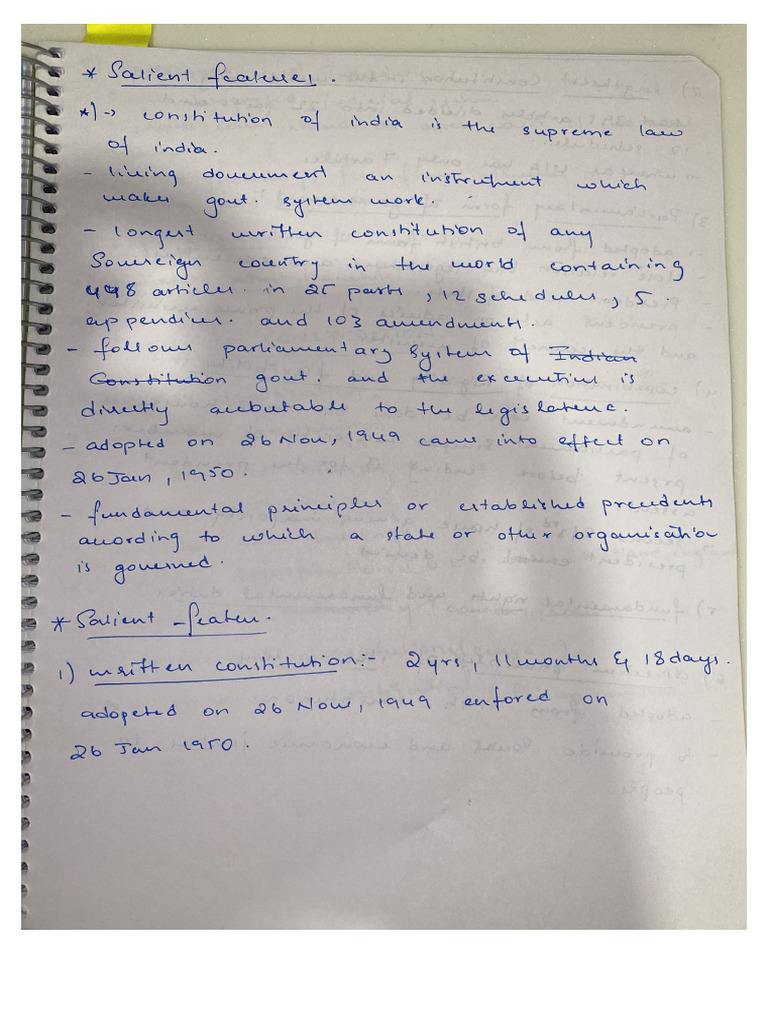 * Salient features.
*) → constitution of india is the supreme law
of india.
- living document an instrument which
makes govt. system work.
- longest written constitution of any
Sovereign country in the world containing
448 articles in 25 parts, 12 schedules, 5
appendices and 103 amendments.
- follows parliamentary system of Indian
Constitution govt. and the executive is
directly to the legislature.
- adopted on 26 Nov, 1949 came into effect on
26 Jan, 1950.
- fundamental principles or established precedents
according to which a state or other organisation
is governed.
* Salient -featu.
1) written constitution:- 2 yrs, 11 months & 18 days.
adopeted on 26 Nov, 1949 enfored on
26 Jan 1950.